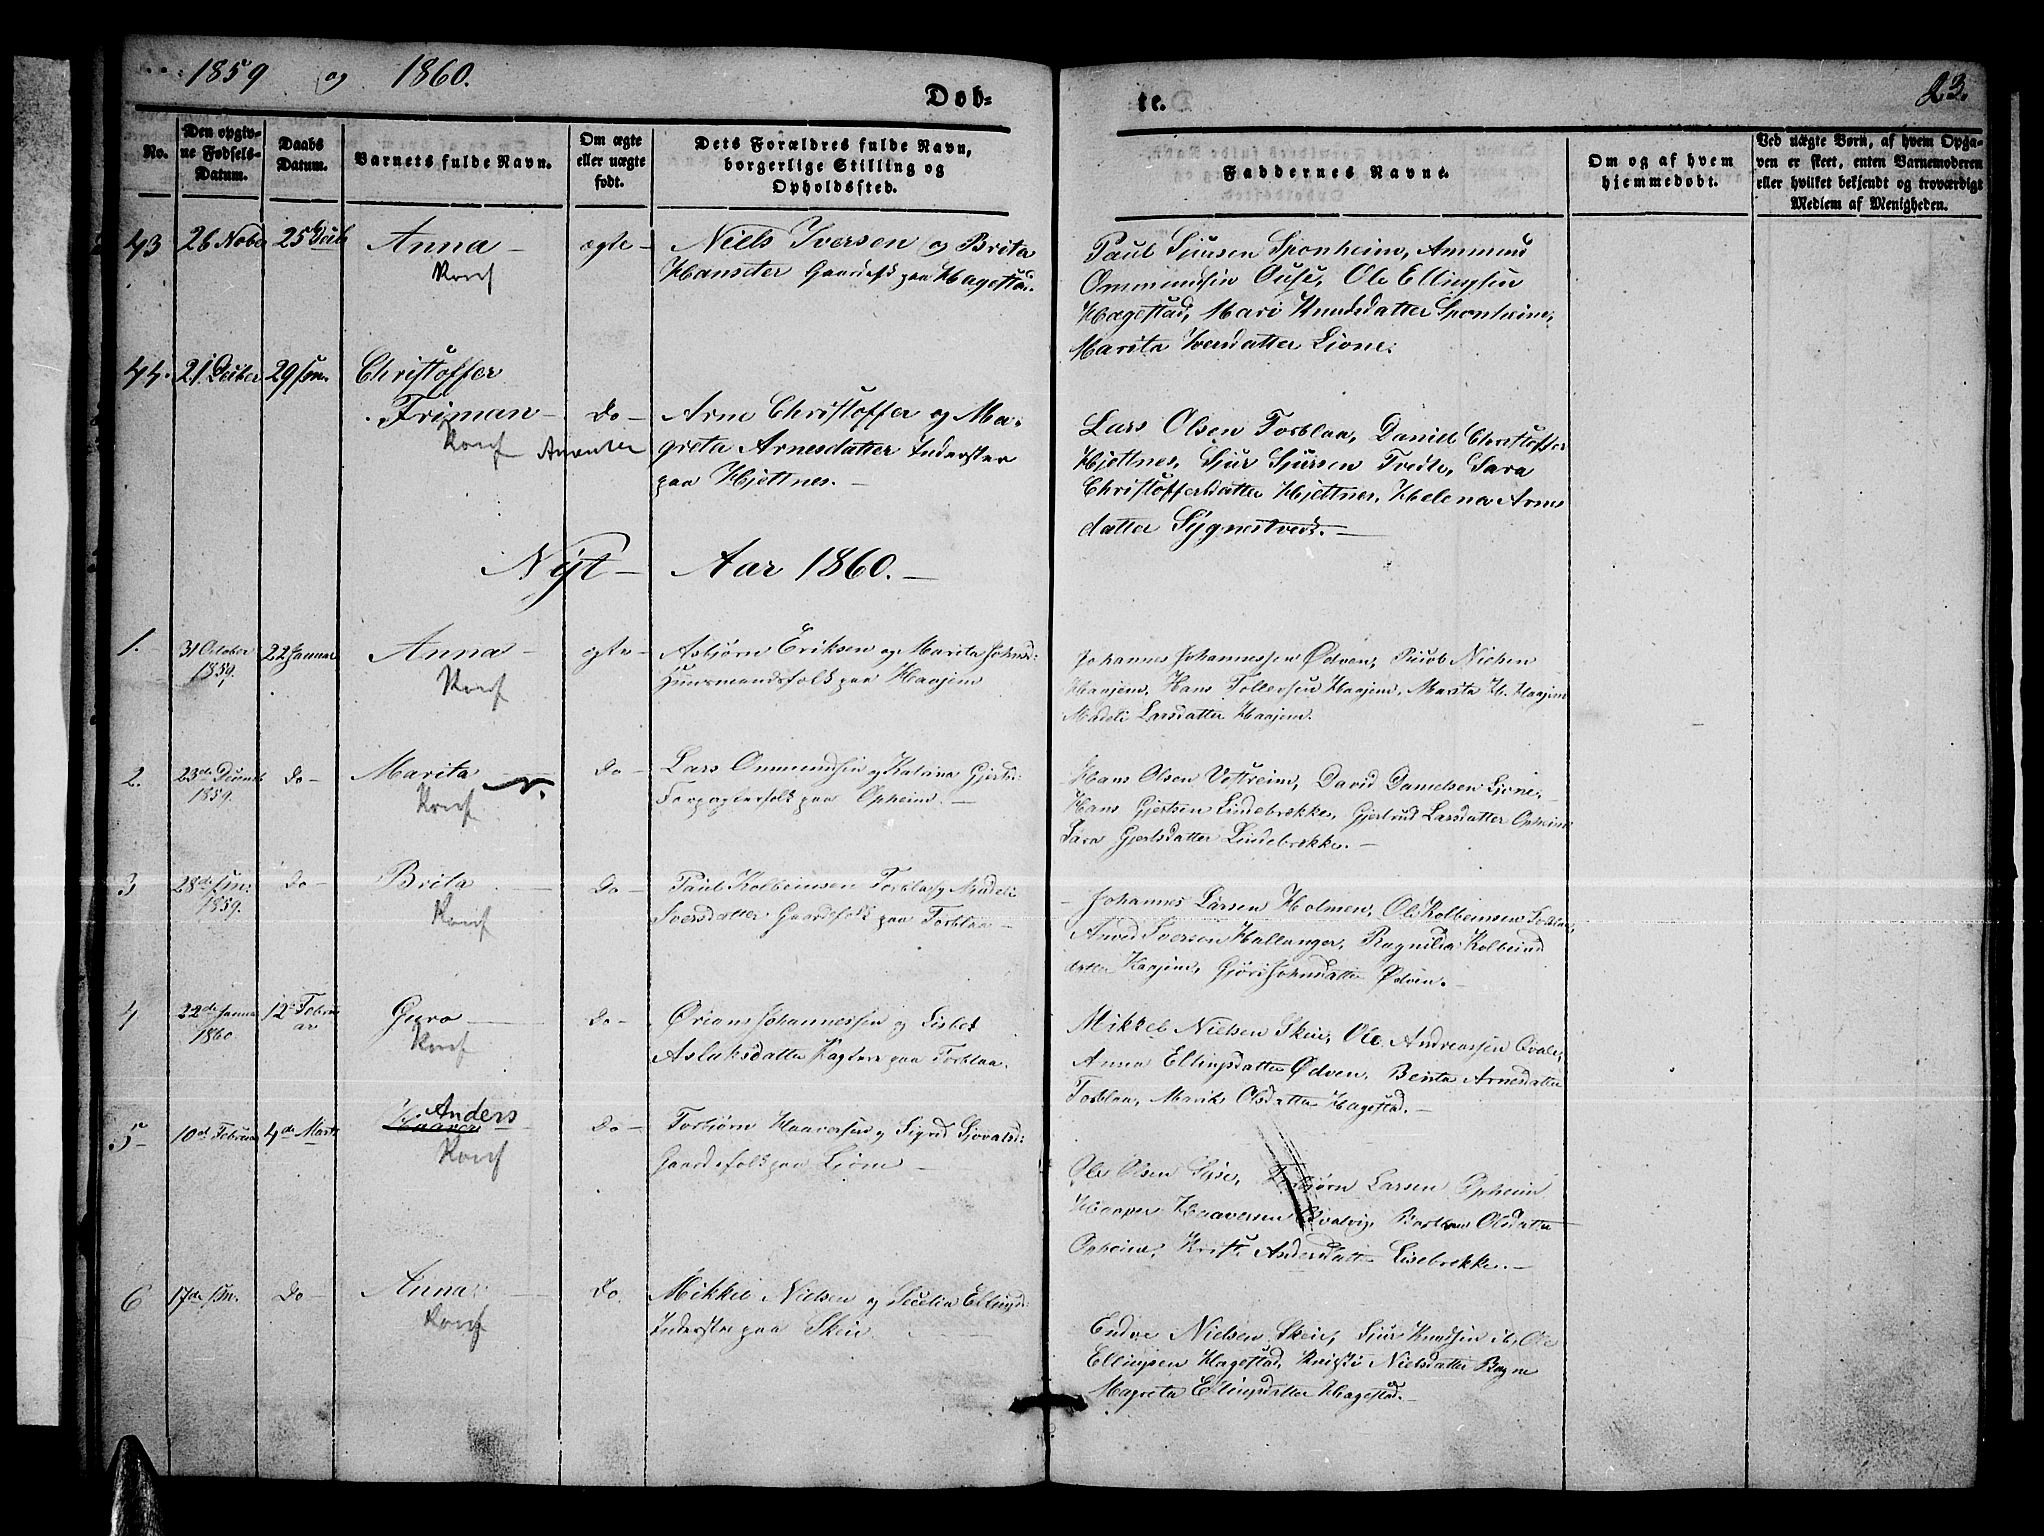 1859 og 1860.
Døb-
te.
23.
No.
Den opgiv-
ne Fødsels-
Datum.
Daabs
Datum.
Barnets fulde Navn.
Om ægte
eller uægte
født.
Dets Forældres fulde Navn,
borgerlige Stilling og
Opholdssted.
Faddernes Navne.
Om og af hvem
hjemmedøbt.
Ved uægte Børn, af hvem Opga-
ven er skeet, enten Barnemoderen
eller hvilket bekjendt og troværdigt
Medlem af Menigheden.
43 26 Nober 25 Decb Anna - ægte - Niels Iversen og Brita
Konf
Hansdter Gaardfolk paa Hagestad.
Paul Sjursen Sponheim, Ammund
Ommundsen Ouse, Ole Ellingsen
Hægestad, Mari Knudsdatter Sponheim,
Marita Iversdatter Lione.
44. 21 Decber 29 sm. Christoffer
Friman - Do - Arne Christoffer og Ma-
Konf
greta Arnesdatter Inderster
paa Hjeltnes. -
Lars Olsen Torblaa, Daniel Christoffer
Hjeltnes, Sjur Sjursen Tvedt, Sara
Christoffersdatter Hjeltnes, Helena Arnes
datter Sygnestveit. -
Nyt - Aar 1860. -
1. - 31 October 22 Januar Anna - ægte - Asbjørn Eriksen og Marita Johnsd:
1859.
Konf
Huusmandsfolk paa Haajem
Johannes Johannessen Ødven, Jacob Nielsen
Haajem, Hans Tollefsen Haajem, Marita H. Haajem
Madeli Larsdatter Haajem.
2. 23de Decemb Do - Marita - Do - Lars Ommundsen og Katrina Gjertsd:
1859.
Konf
Forpagterfolk paa Opheim. -
Hans Olsen Vestreim, David Danielsen Lione,
Hans Gjertsen Lindebrekke, Gjertrud Larsdatter Opheim
Sara Gjertsdatter Lindebrekke. -
3 28de sm: Do - Brita - Do - Paul Kolbeinsen Torblaa og Madeli
1859.
Konf
Iversdatter Gaardefolk paa Torblaa -
Johannes Larsen Holmen, Ole Kolbeinsen Torblaa,
Arved Iversen Hallanger, Ragnilda Kolbeins
datter Haajem, Gjøri Johnsdatter Ødven. -
4 22de Janua 12te Februar Guro - Do - Ørians Johannessen og Lisbet
1860
Konf
Aslaksdatter paa Torblaa.
Mikkel Nielsen Skeie, Ole Andreassen Qvale,
Anna Ellingsdatter Ødven, Berita Arnesdatter
Torblaa, Marita Olsdatter Hagestad. -
Anders
5 - 10de Februar 4de Marts Haaver - Do - Torbjørn Haaversen og Sigrid Sjovatsd:
Konf
Gaardefolk paa Lione -
Ole Olsen Lione, Torbjørn Larsen Opheim
Haaver Haaversen Qvalvig, Olsdatter
Opheim, Kristi Andersdatter Lisebrekke. -
6 17de sm. Do - Anna - Do. Mikkel Nielsen og Secelia Ellingsd:
Konf
Inderster paa Skeie
Endre Nielsen Skeie, Sjur Knudsen ib, Ole
Ellingsen Hagestad, Kristi Nielsdatter Bagne
Magreta Ellingsdatter Hagestad. -